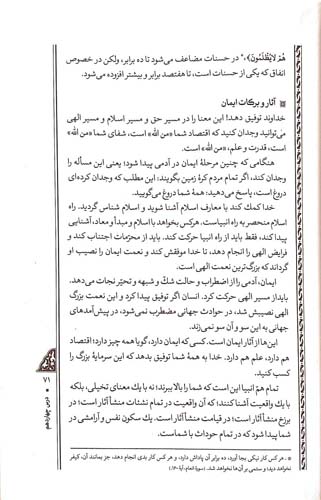 هُمْ لایُظْلَمُونَ﴾،* در حسنات مضاعف می‌شود تا ده برابر، ولکن در خصوص
انفاق که یکی از حسنات است، تا هفتصد برابر و بیشتر افزوده می‌شود.
آثار و برکات ایمان
خداوند توفیق دهد! این معنا را در مسیر حق و مسیر اسلام و مسیر الهی
می‌توانید وجدان کنید که اقتصاد شما «من اللّه» است، شفای شما «من اللّه»
است، قدرت و علم، «من اللّه» است.
هنگامی که چنین مرحلهٔ ایمان در آدمی پیدا شود؛ یعنی این مسأله را
وجدان کند، اگر تمام مردم کرهٔ زمین بگویند: این مطلب که وجدان کرده‌ای
دروغ است، پاسخ می‌دهید: همهٔ شما دروغ می‌گویید.
خدا کمک کند با معارف اسلام آشنا شوید و اسلام شناس گردید. راه
اسلام منحصر به راه انبیاست. هرکس بخواهد با اسلام و مبدأ و معاد، آشنایی
پیدا کند، فقط باید از راه انبیا حرکت کند. باید از محرمات اجتناب کند و
فرایض الهی را انجام دهد، تا خدا موفقش کند و نعمت ایمان را نصیب او
گرداند که بزرگ‌ترین نعمت الهی است.
ایمان، آدمی را از اضطراب و حالت شکّ و شبهه و تحیّر نجات می‌دهد.
باید از مسیر الهی حرکت کرد. انسان اگر توفیق پیدا کرد و این نعمت بزرگ
الهی نصیبش شد، در حوادث جهانی مضطرب نمی‌شود، در پیش‌آمدهای
جهانی به این سو و آن سو نمی‌زند.
این‌ها از آثار ایمان است. کسی که ایمان دارد، گویا همه چیز دارد؛ اقتصاد
هم دارد، علم هم دارد. خدا به همهٔ شما توفیق بدهد که این سرمایهٔ بزرگ را
کسب کنید.
تمام همّ انبیا این است که شما را بالا ببرند؛ نه با یک معنای تخیلی، بلکه
با یک واقعیت آشنا کنند؛ که آن واقعیت در تمام نشئات منشأ آثار است؛ در
برزخ منشأ آثار است؛ در قیامت منشأ آثار است. یک سکون نفس و آرامشی در
شما پیدا شود که در تمام حوادث با شماست.
* . هر کس کار نیکی بجا آورد، ده برابر آن پاداش دارد، و هر کس کار بدی انجام دهد، جز بمانند آن، کیفر
نخواهد دید؛ و ستمی بر آن‌ها نخواهد شد. (سوره انعام، آیهٔ ۱۶۰).
۷۱
درس چهاردهم